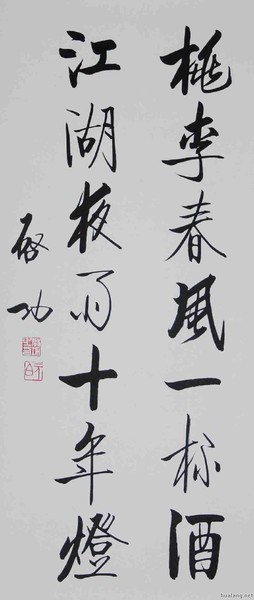 桃李春風一杯酒
江湖夜雨十年燈
啓功
hualang.net